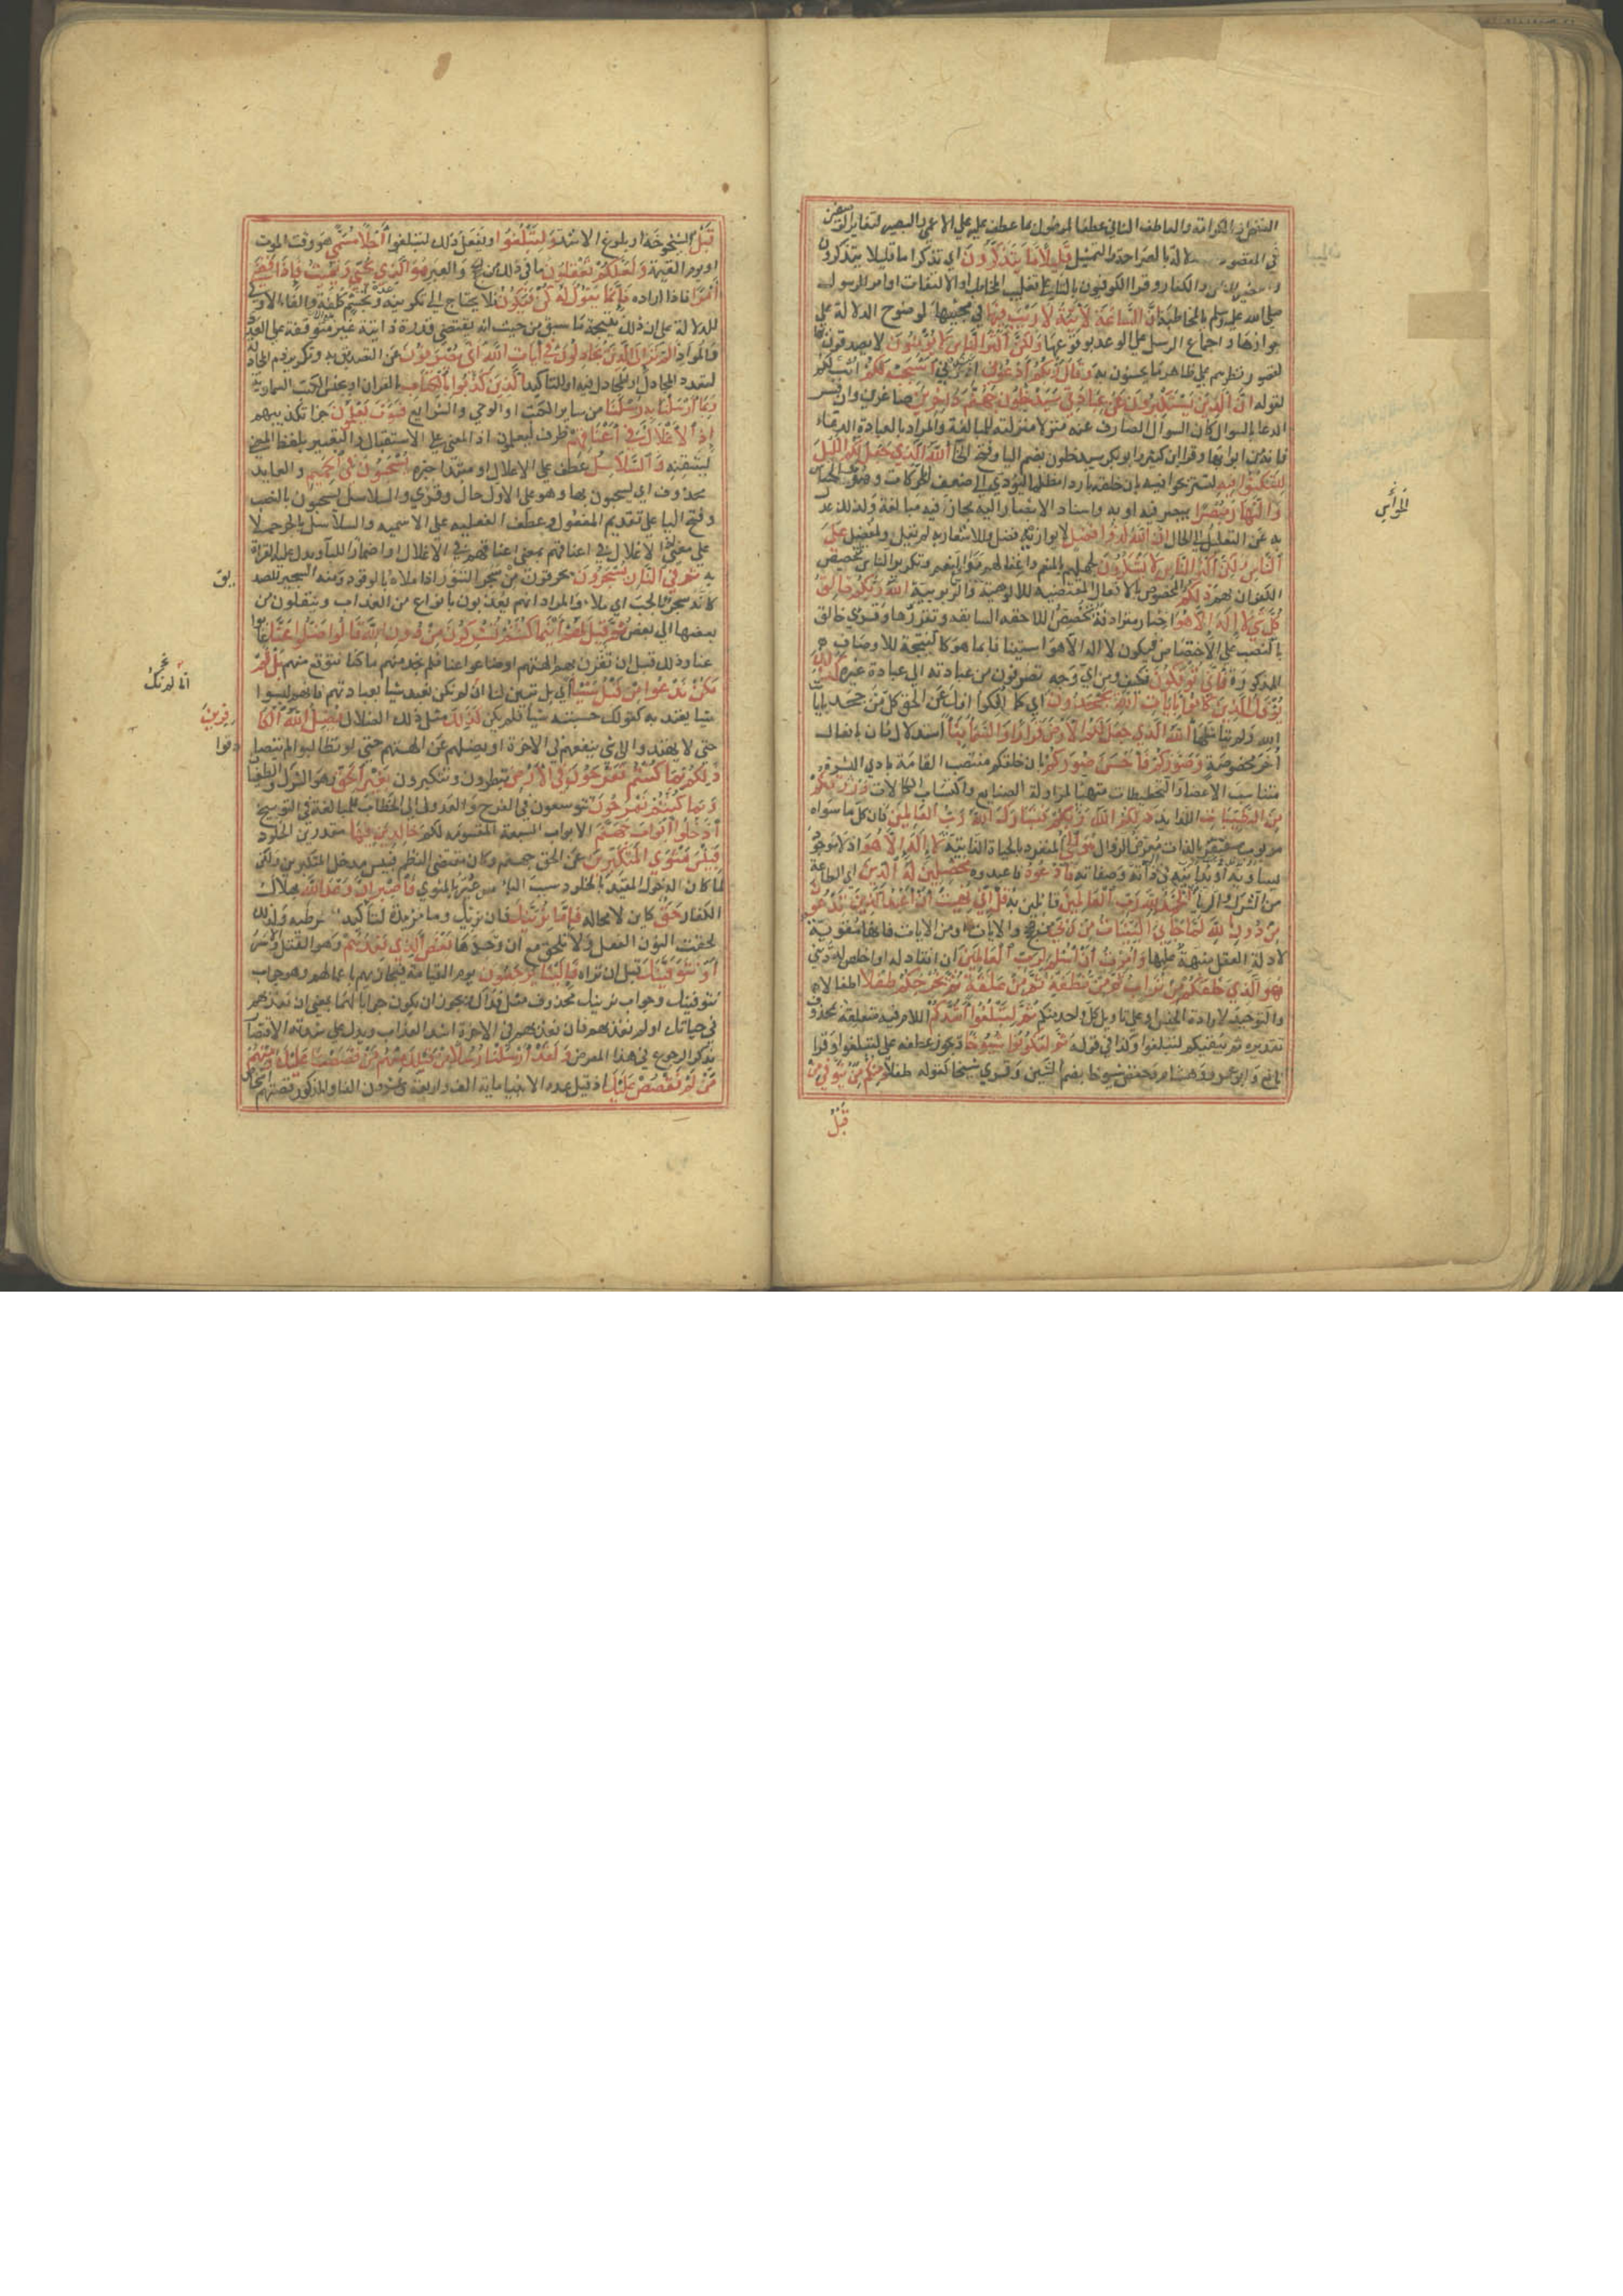 في المقصود الدلالة بالصراحة والتمثيل قليلا ما يتذكرون اي تذكرا ما قليلا يتذكرون
صلى الله عليه وسلم بالمخاطبة ان الساعة لآتية لا ريب فيها في مجيئها لوضوح الدلالة على
جوازها واجماع الرسل على الوعد بوقوعها ولكن اكثر الناس لا يؤمنون لا يصدقون بها
لقصور نظرهم على ظاهر ما يحسون به وقال ربكم ادعوني اعبدوني استجب لكم اثبكم
لقوله ان الذين يستكبرون عن عبادتي سيدخلون جهنم داخرين صاغرين وان فسر
الدعا بالسوال كان السوال الصارف عنه منزلا منزلته للمبالغة والمراد بالعبادة الدعاء
فانه من ابوابها وقرا ابن كثير وابو بكر سيدخلون بضم اليا وفتح الخا الله الذي جعل لكم الليل
لتسكنوا فيه لتستريحوا فيه بان خلقه باردا مظلما ليؤدي الى ضعف المحركات وهدو الحواس
والنهار مبصرا يبصر فيه او به واسناد الابصار اليه مجاز فيه مبالغة ولذلك عدل
به عن التعليل الى الحال ان الله لذو فضل لا يوازيه فضل وللاشعار به لم يقل لمفضل على
الناس ولكن اكثر الناس لا يشكرون لجهلهم بالمنعم واغفالهم مواقع النعم وتكرير الناس لتخصيص
الكفران بهم ذلكم المخصوص بالافعال المقتضية للالوهية والربوبية الله ربكم خالق
كل شي لا اله الا هو اخبار مترادفة تخصص اللاحقة السابقة وتقررها وقري خالق
بالنصب على الاختصاص فيكون لا اله الا هو استينافا بما هو كالنتيجة للاوصاف
المذكورة فانى توفكون فكيف ومن اي وجه تصرفون من عبادته الى عبادة غيره كذلك
يوفك الذين كانوا بايات الله يجحدون اي كما افكوا افك عن الحق كل من جحد بايات
الله ولم يتاملها الله الذي جعل لكم الارض قرارا والسماء بناء استدلال ثان بافعال
اخر مخصوصة وصوركم فاحسن صوركم بان خلقكم منتصب القامة بادي البشرة
متناسب الاعضاء والتخطيطات متهيئا لمزاولة الصنايع واكتساب الكمالات ورزقكم
من الطيبات اللذايذ ذلكم الله ربكم فتبارك الله رب العالمين فان كل ما سواه
مربوب مفتقر بالذات معرض للزوال هو الحي المتفرد بالحياة الذاتية لا اله الا هو اذ لا موجود
يساويه او يدانيه في ذاته وصفاته فادعوه فاعبدوه مخلصين له الدين اي الطاعة
من الشرك والريا الحمد لله رب العالمين قايلين له قل اني نهيت ان اعبد الذين تدعون
من دون الله لما جاءني البينات من ربي من الحجج والايات او من الايات فانها مقوية
لادلة العقل منبهة عليها وامرت ان اسلم لرب العالمين ان انقاد له او اخلص له ديني
هو الذي خلقكم من تراب ثم من نطفة ثم من علقة ثم يخرجكم طفلا اطفالا
والتوحيد لارادة الجنس او على تاويل كل واحد منكم ثم لتبلغوا اشدكم اللام فيه متعلقة بمحذوف
تقديره ثم يبقيكم لتبلغوا وكذا في قوله ثم لتكونوا شيوخا ويجوز عطفه على لتبلغوا وقرا
نافع وابو عمرو وهشام وحفص شيوخا بضم الشين وقري شيخا كقوله طفلا ومنكم من يتوفى من
قبل
قبل الشيخوخة او بلوغ الاشد ولتبلغوا ويفعل ذلك لتبلغوا اجلا مسمى هو وقت الموت
او يوم القيمة ولعلكم تعقلون ما في ذلك من الحجج والعبر هو الذي يحيي ويميت فاذا قضى
امرا فاذا اراده فانما يقول له كن فيكون فلا يحتاج الى تكوينه عدة وتجشم كلفة والفاء الاولى
للدلالة على ان ذلك نتيجة ما سبق من حيث انه يقتضي قدرة ذاتية غير متوقفة على العدد
والمواد الم تر الى الذين يجادلون في ايات الله انى يصرفون عن التصديق به وتكرير ذم المجادلة
لتعدد المجادل او المجادل فيه او للتاكيد الذين كذبوا بالكتاب بالقران او بجنس الكتب السماوية
وبما ارسلنا به رسلنا من ساير الكتب او الوحي والشرايع فسوف يعلمون جزا تكذيبهم
اذ الاغلال في اعناقهم ظرف ليعلمون اذ المعنى على الاستقبال والتعبير بلفظ المضي
لتيقنه والسلاسل عطف على الاغلال او مبتدا خبره يسحبون في الحميم والعايد
محذوف اي يسحبون بها وهو على الاول حال وقري والسلاسل يسحبون بالنصب
وفتح اليا على تقديم المفعول وعطف الفعلية على الاسمية والسلاسل بالجر حملا
على معنى اذ الاغلال في اعناقهم بمعنى اعناقهم في الاغلال او اضمارا للباء ويدل عليه القراة
به ثم في النار يسجرون يحرقون من سجر التنور اذا ملاه بالوقود ومنه السجير للصد
يق
كانه سجر بالحب اي ملي والمراد انهم يعذبون بانواع من العذاب وينقلون من
بعضها الى بعض ثم قيل لهم اينما كنتم تشركون من دون الله قالوا ضلوا عنا غابوا
عنا وذلك قبل ان تقرن بهم الهتهم او ضاعوا عنا فلم نجد منهم ما كنا نتوقع منهم بل لم
نكن ندعوا من قبل شيئا اي بل تبين لنا ان لم نكن نعبد شيا بعبادتهم فانهم ليسوا
شيا يعتد به كقولك حسبته شيا فلم يكن كذلك مثل ذلك الضلال يضل الله الكا
فرين
حتى لا يهتدوا الى شي ينفعهم في الاخرة او يضلهم عن الهتهم حتى لو تطالبوا لم يتصا
دفوا
ذلكم بما كنتم تفرحون في الارض تبطرون وتتكبرون بغير الحق وهو الشرك والطغيان
وبما كنتم تمرحون تتوسعون في الفرح والعدول الى الخطاب للمبالغة في التوبيخ
ادخلوا ابواب جهنم الابواب السبعة المقسومة لكم خالدين فيها مقدرين الخلود
فبئس مثوى المتكبرين عن الحق جهنم وكان مقتضى النظم فبئس مدخل المتكبرين ولكن
لما كان الدخول المقيد بالخلود سبب الثوا عبر بالمثوى فاصبر ان وعد الله بهلاك
الكفار حق كاين لا محالة فاما نرينك فان نرك وما مزيدة لتاكيد الشرطية ولذلك
لحقت النون الفعل ولا تلحق مع ان وحدها بعض الذي نعدهم وهو القتل والاسر
او نتوفينك قبل ان تراه فالينا يرجعون يوم القيامة فنجازيهم باعمالهم وهو جواب
نتوفينك وجواب نرينك محذوف مثل فذاك ويجوز ان يكون جوابا لهما بمعنى ان نعذبهم
في حياتك او لم نعذبهم فان نعذبهم في الاخرة اشد العذاب ويدل على شدته الاقتصار
بذكر الرجوع في هذا المعرض ولقد ارسلنا رسلا من قبلك منهم من قصصنا عليك ومنهم
من لم نقصص عليك اذ قيل عدد الانبيا ماية الف واربعة وعشرون الفا والمذكور قصتهم اشخاص